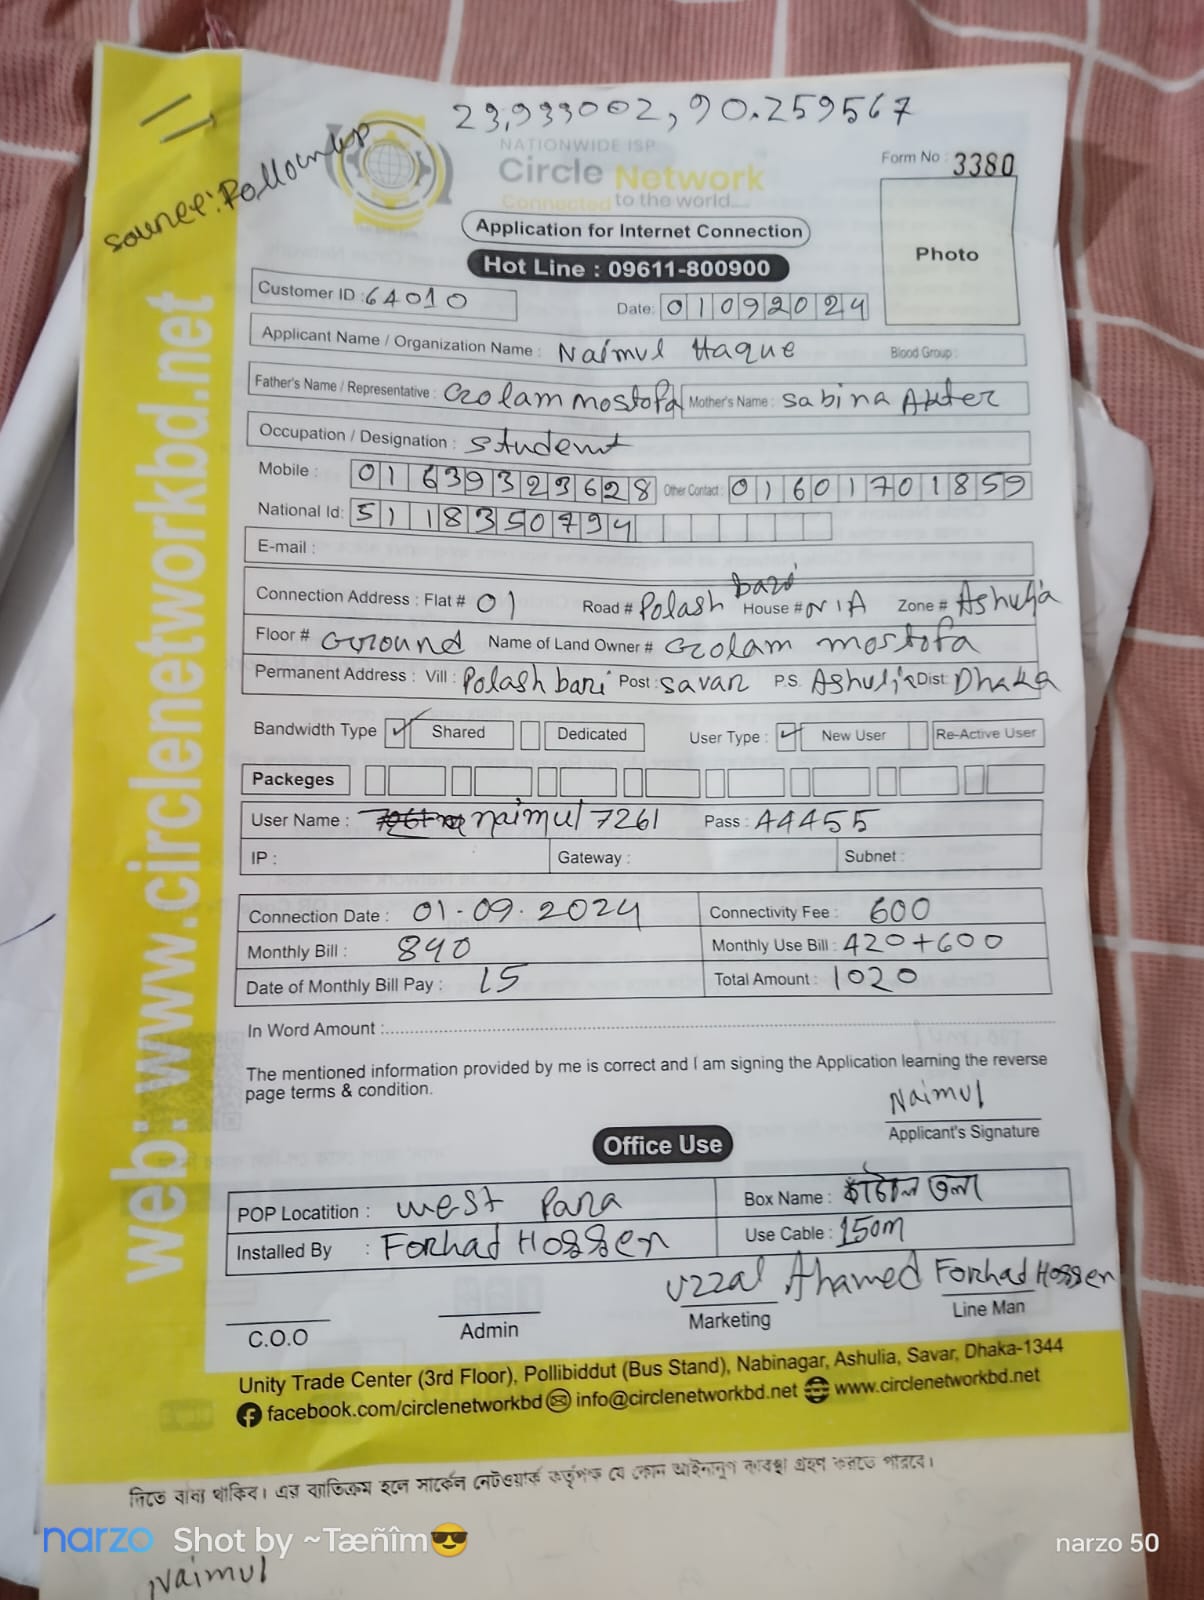 23.933002, 90.259567
NATIONWIDE ISP
Circle Network
Connected to the world....
Form No : 3380
Application for Internet Connection
Hot Line : 09611-800900
Photo
Customer ID : 64010
Date: 01092024
Applicant Name / Organization Name : Naimul Haque
Blood Group :
Father's Name / Representative : Golam mostofa Mother's Name : Sabina Akter
Occupation / Designation : Student
Mobile : 01639323628 Other Contact : 01601701859
National Id: 5118350794
E-mail :
Connection Address : Flat # 01 Road # Polash bari House # N/A Zone # Ashulia
Floor # Ground Name of Land Owner # Golam mostofa
Permanent Address : Vill : Polash bari Post : Savar P.S. Ashulia Dist: Dhaka
Bandwidth Type Shared Dedicated User Type : New User Re-Active User
Packeges
User Name : naimul7261 Pass : 44455
IP : Gateway : Subnet :
Connection Date : 01-09-2024 Connectivity Fee : 600
Monthly Bill : 840 Monthly Use Bill : 420+600
Date of Monthly Bill Pay : 15 Total Amount : 1020
In Word Amount :
The mentioned information provided by me is correct and I am signing the Application learning the reverse
page terms & condition.
Naimul
Applicant's Signature
Office Use
POP Locatition : West Para Box Name :
Installed By : Forhad Hossen Use Cable : 150m
Uzzal Ahamed Forhad Hossen
C.O.O Admin Marketing Line Man
Unity Trade Center (3rd Floor), Pollibiddut (Bus Stand), Nabinagar, Ashulia, Savar, Dhaka-1344
facebook.com/circlenetworkbd info@circlenetworkbd.net www.circlenetworkbd.net
web: www.circlenetworkbd.net
নিতে বাধ্য থাকিব। এর ব্যতিক্রম হলে সার্কেল নেটওয়ার্ক কর্তৃপক্ষ যে কোন আইনানুগ ব্যবস্থা গ্রহণ করতে পারবে।
narzo Shot by ~Tæñîm😎 narzo 50
Naimul